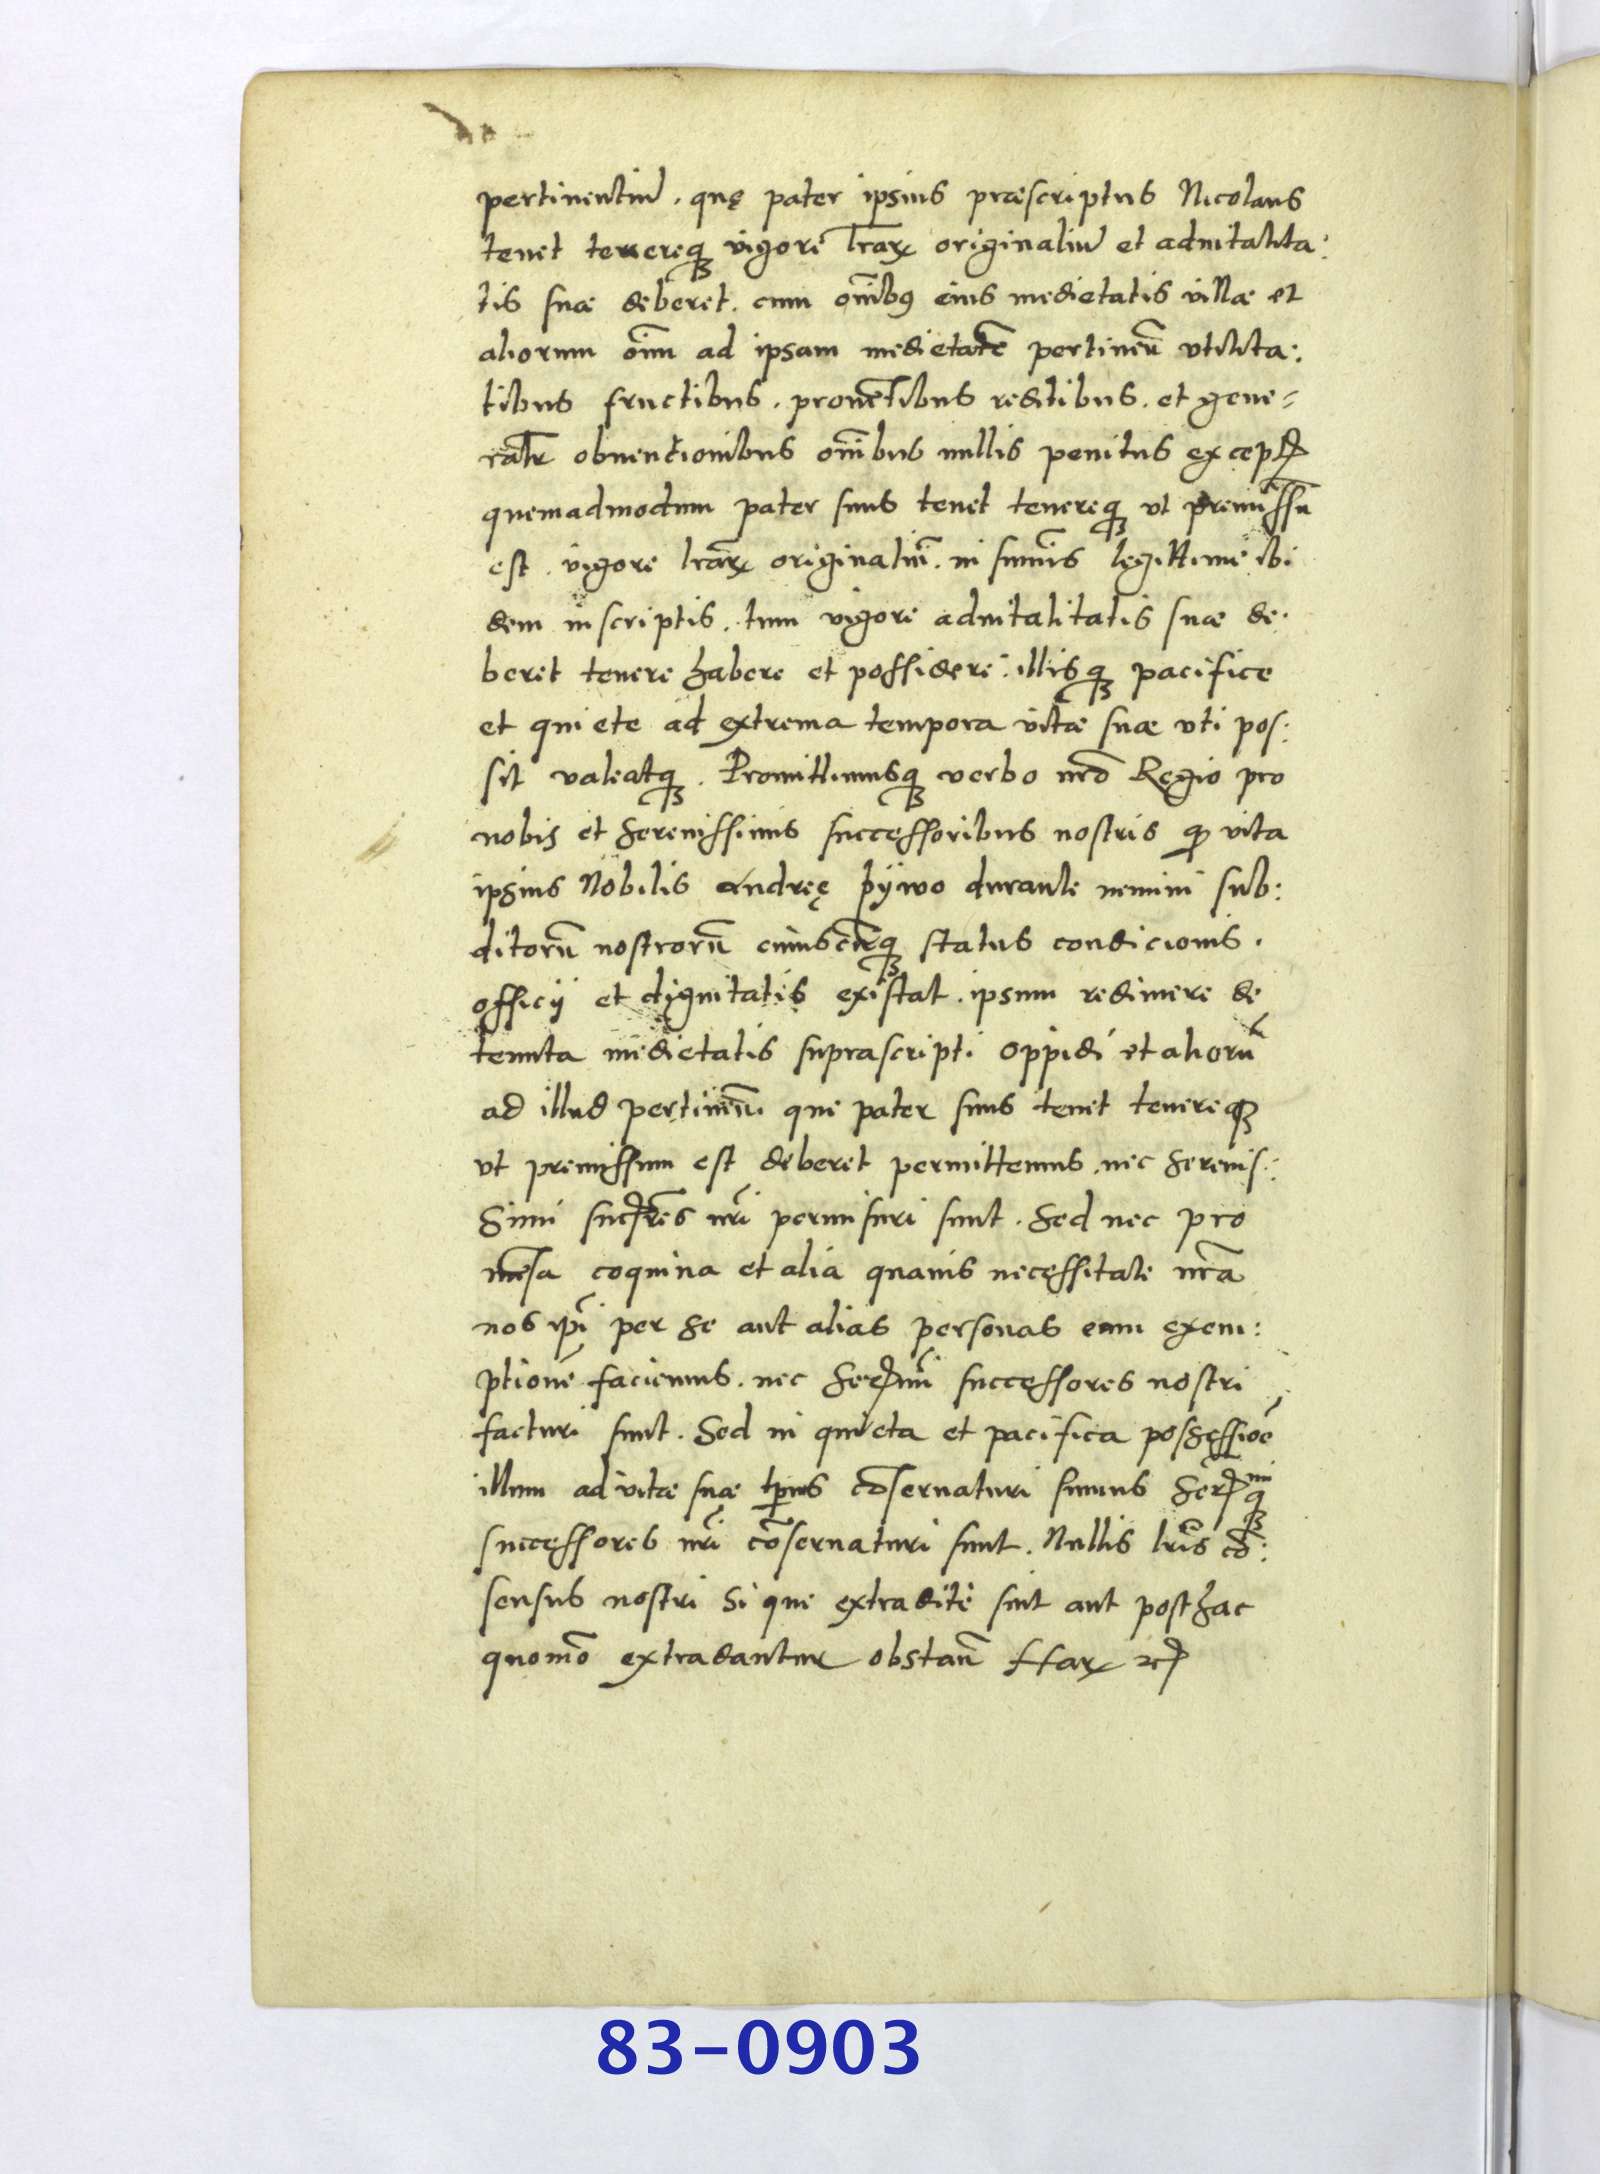 pertinentiu̅. quę pater ipsius præscriptus Nicolaus
tenet tenereq́ꝫ vigore l̅raꝝ originaliu̅ et aduitalita:
tis suæ deberet. cum om̅ibꝰ eius medietatis villæ et
aliorum oi̅m ad ipsam medietate̅ pertinen̅ vtilita:
tibus fructibus. proue̅tibus reditibus. et gene=
ral̅r obuentionibus om̅ibus nullis penitus exceptꝭ
quemadmodum pater suus tenet tenereqꝫ vt premissu̅
est. vigore l̅raꝝ originaliu̅. in summis legittime ibi
dem inscriptis. tum vigore aduitalitatis suæ de.
beret tenere habere et possidere. illisqꝫ pacifice
et quiete ad extrema tempora vitæ suæ vti pos:
sit valeatqꝫ. Promittimusqꝫ verbo nr̅o Regio pro
nobis et serenissimis successoribus nostris ꝙ vita
ipsius Nobilis Andreę pÿwo durante nemini sub:
ditoru̅ nostroru̅ cuiuscu̅qꝫ status condicionis.
officij et dignitatis existat. ipsum redimere de
tenuta medietatis suprascripti oppidi et alioru̅
ad illud pertinen̅. que pater suus tenet tenereqꝫ
vt premissum est deberet permittemus. nec serenis:
Simi succr̅es nr̅i permisuri sunt. Sed nec pro
me̅sa coquina et alia quauis necessitate nr̅a
nos ip̅i per se aut alias personas eam exem:
ptione̅ faciemus. nec Serꝭmi̅ successores nostri
facturi sunt. Sed in quieta et pacifica possessio̅e
illum ad vitæ suæ tp̅us co̅seruaturi sumus Serꝭmiqꝫ
successores nr̅i co̅seruaturi sunt. Nullis l̅ris co̅:
sensus nostri si que extradite sint aut posthac
quomo̅ extradantur obstan̅ Haꝝ ꝛcꝭ
83-0903